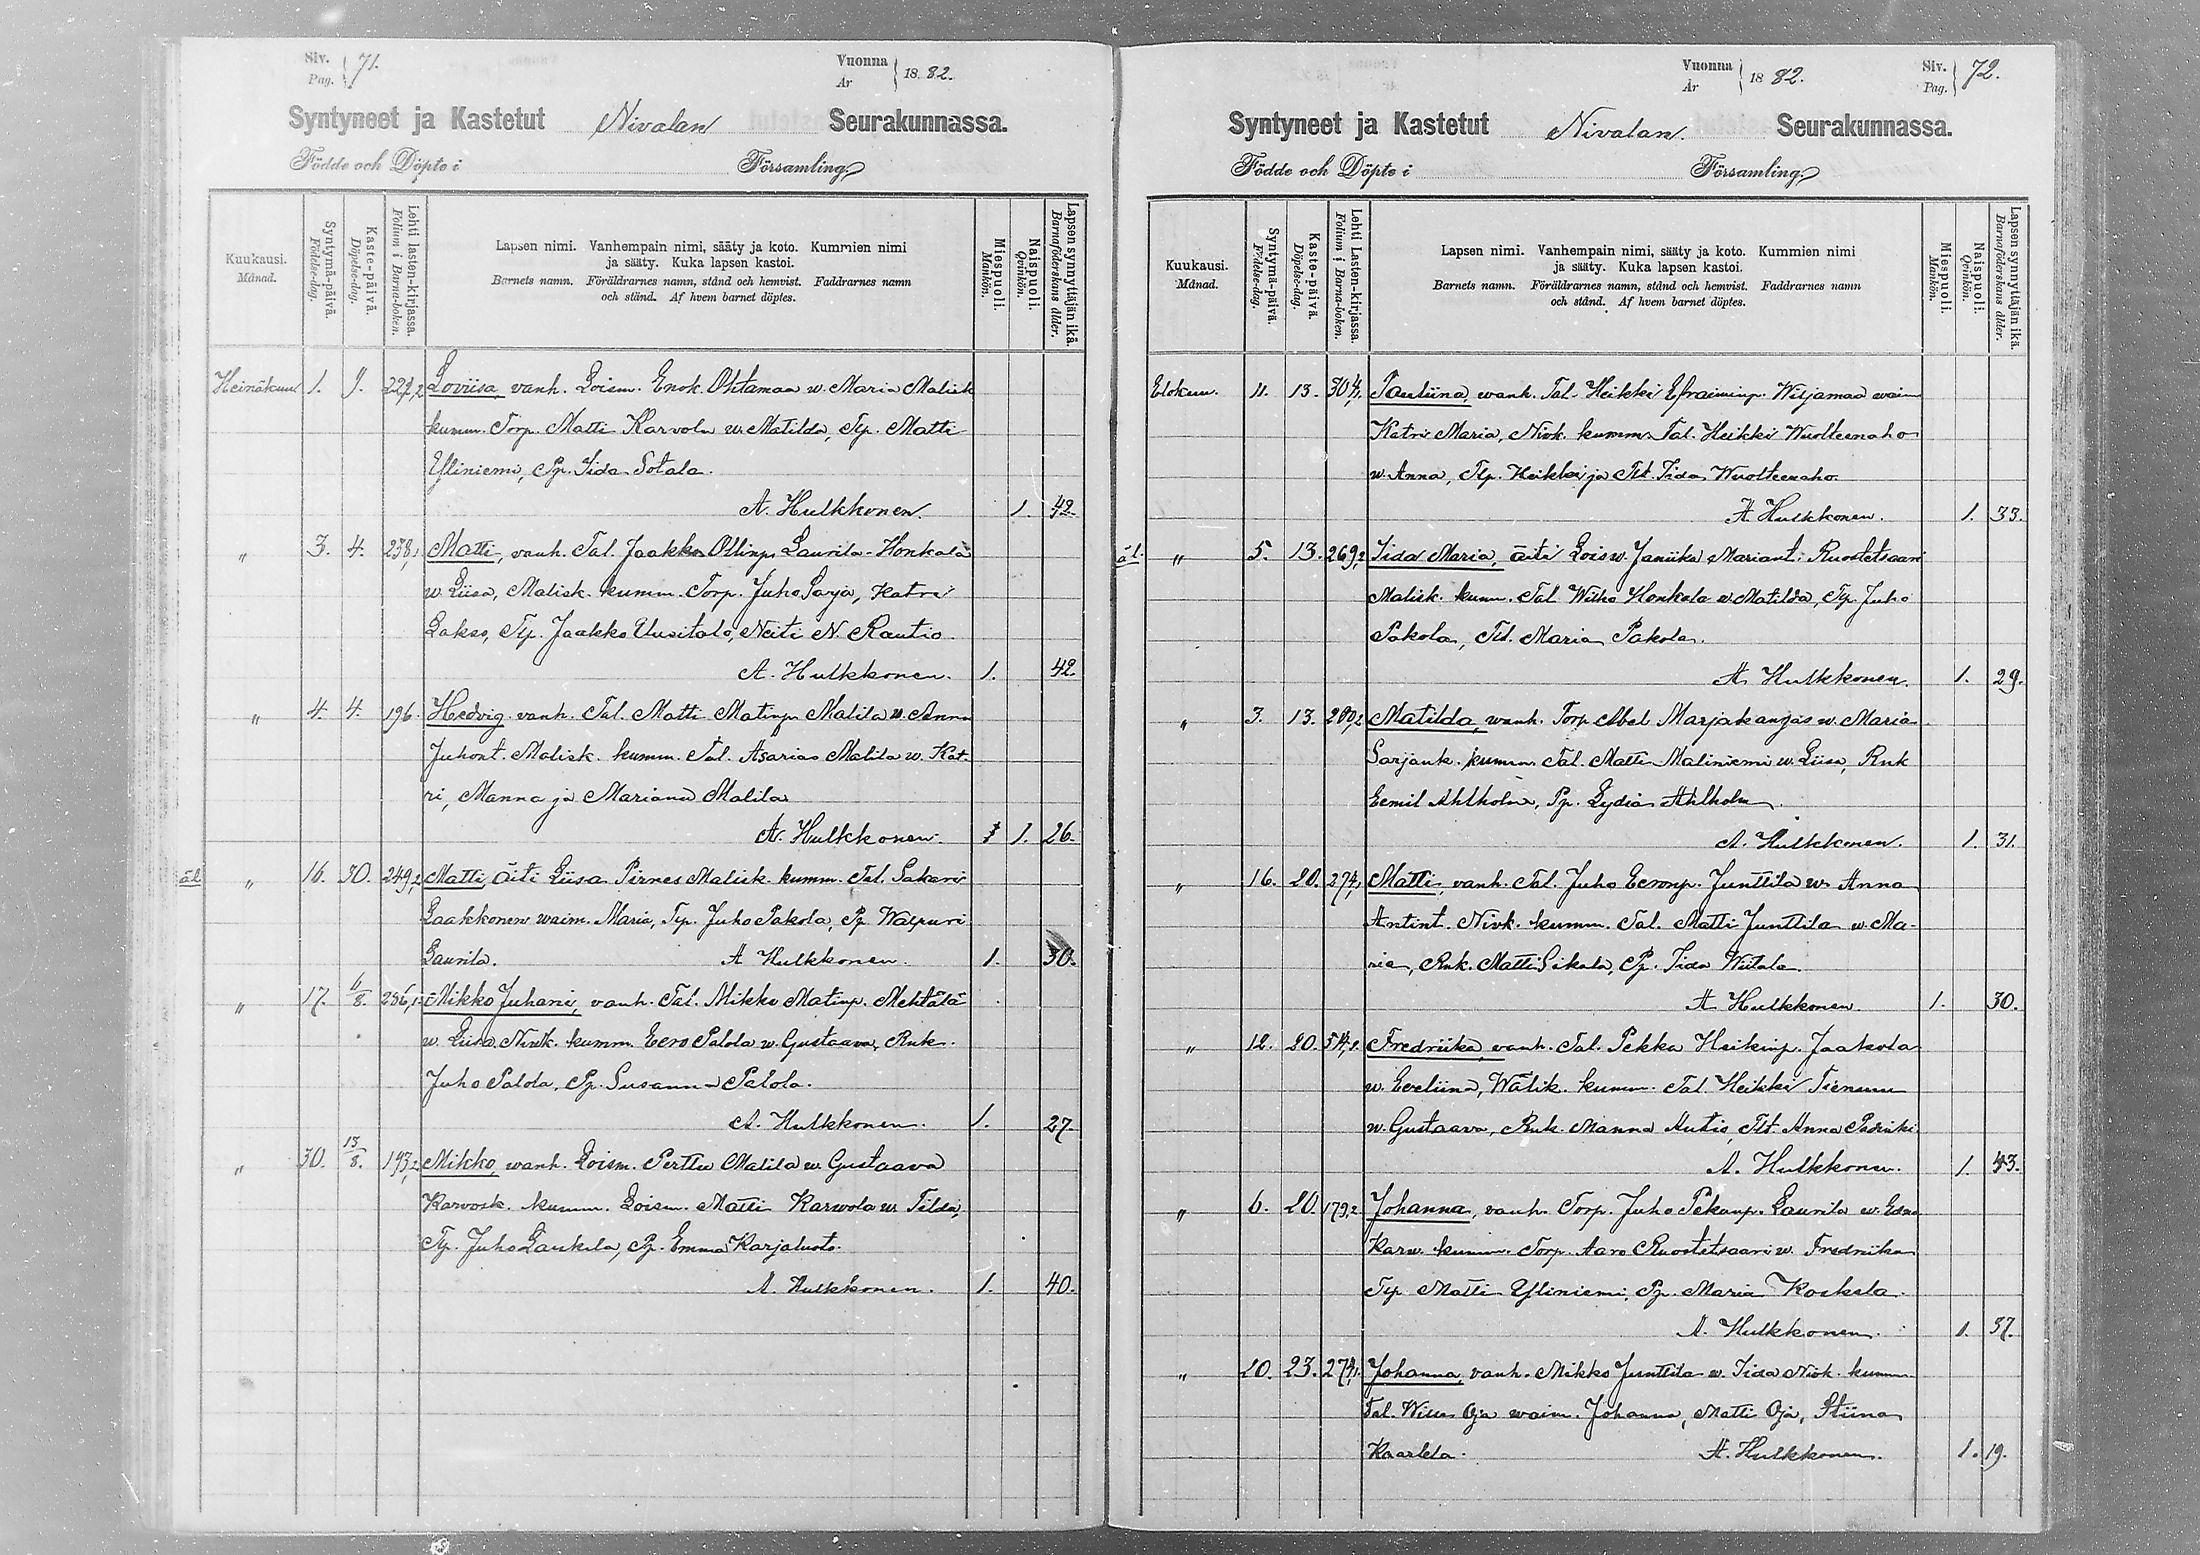 Siv. Pag. 71.
Vuonna År 1882.
Syntyneet ja Kastetut Nivalan Seurakunnassa.
Födde och Döpte i Församling
Kuukausi. Månad.
Syntymä-päivä. Födelse-dag.
Kaste-päivä. Döpelse-dag.
Lehti lasten-kirjassa. Folium i Barna-boken.
Lapsen nimi. Vanhempain nimi, sääty ja koto. Kummien nimi
ja sääty. Kuka lapsen kastoi.
Barnets namn. Föräldrarnes namn, stånd och hemvist. Faddrarnes namn
och stånd. Af hvem barnet döptes.
Miespuoli. Mankön.
Naispuoli. Qvinkön.
Lapsen synnyttäjän ikä. Barnaföderskans ålder.
Heinäkuu 1. 9. Loviisa, vanh. Loism. Enok Ohtamaa w. Maria Malisk
kumm. Torp. Matti Karvola w. Matilda, Tp. Matti
Yliniemi, Pp. Iida Sotala.
A. Hulkkonen. 1. 42.
" 3. 4. 238,1 Matti, vanh. Tal. Jaakko Ollinp. Laurila-Honkala
w. Liisa, Malisk. kumm. Torp. Juho Sarja, Katri
Lakso, Tp. Jaakko Uusitalo, Neiti N. Rautio
A. Hulkkonen. 1. 42.
" 4. 4. 196. Hedvig vanh. Tal. Matti Matinp. Malila w. Anna
Juhont. Malisk. kumm. Tal. Asarias Malila w. Kat-
ri, Manna ja Mariana Malila
A. Hulkkonen. 1. 26.
äl. " 16. 30. 249,2 Matti, äiti Liisa Pirnes Malisk. kumm. Tal. Sakari
Laakkonen waim. Maria, Tp. Juho Pakola, Pp. Walpuri
Laurila. A Hulkkonen. 1. 30.
" 17. 6/8. 256,1 Mikko Juhani, vanh. Tal. Mikko Matinp. Mehtälä
w. Liisa, Nivk. kumm. Eero Palola w. Gustaava, Rnk.
Juho Palola, Pp. Susanna Palola.
A. Hulkkonen. 1. 27.
" 30. 13/8. 193,2 Mikko, wanh. Loism. Perttu Malila w. Gustaava
Karvosk. kumm. Loism. Matti Karwola w. Tilda,
Tp. Juho Laukila, Pp. Emma Karjaluoto.
A. Hulkkonen. 1. 40.
Vuonna År 1882.
Siv. Pag. 72.
Syntyneet ja Kastetut Nivalan. Seurakunnassa.
Födde och Döpte i Församling
Kuukausi. Månad.
Syntymä-päivä. Födelse-dag.
Kaste-päivä. Döpelse-dag.
Lehti Lasten-kirjassa. Folium i Barna-boken.
Lapsen nimi. Vanhempain nimi, sääty ja koto. Kummien nimi
ja sääty. Kuka lapsen kastoi.
Barnets namn. Föräldrarnes namn, stånd och hemvist. Faddrarnes namn
och stånd. Af hvem barnet döptes.
Miespuoli. Mankön.
Naispuoli. Qvinkön.
Lapsen synnyttäjän ikä. Barnaföderskans ålder.
Elokuu. 11. 13. 304,1. Pauliina, wanh. Tal. Heikki Efraiminp. Wiljamaa waim
Katri Maria, Nivk. kumm. Tal. Heikki Wuolteenaho
w. Anna, Tlp. Heikki ja Tlt. Iida Wuolteenaho.
A Hulkkonen. 1. 33.
äl. " 5. 13. 269,2 Iida Maria, äiti Loisw. Janiika Mariant. Ruostetsaari
Malisk. kumm. Tal. Wilho Honkala w. Matilda, Tp. Juho
Pakola, Tlt. Maria Pakola.
A. Hulkkonen. 1. 29.
" 3. 13. 280,2 Matilda, wanh. Torp. Abel Marjakangas w. Maria
Sarjank. kumm. Tal. Matti Maliniemi w. Liisa, Rnk
Eemil Ahlholm, Pp. Lydia Ahlholm.
A. Hulkkonen. 1. 31.
" 16. 20. 274,1 Matti, vanh. Tal. Juho Eeronp. Junttila w. Anna
Antint. Nivk. kumm. Tal. Matti Junttila w. Ma-
ria, Rnk. Matti Sikala, Pp. Iida Wiitala.
A Hulkkonen. 1. 30.
" 12. 20. 54,1. Fredriika, vanh. Tal. Pekka Heikinp. Jaakola
w. Eveliina, Wälik. kumm. Tal. Heikki Tienuu
w. Gustaava, Rnk. Manna Autio, Tlt. Anna
A. Hulkkonen. 1. 43.
" 6. 20. 179,2 Johanna, vanh. Torp. Juho Pekanp. Laurila w.
Karw. kumm. Torp. Aaro Ruostetsaari w. Fredriika
Tp. Matti Yliniemi, Pp. Maria Koskela.
A. Hulkkonen. 1. 37.
" 20. 23. 274,1. Johanna, vanh. Mikko Junttila w. Iida Nivk. kumm.
Tal. Oja waim. Johanna, Matti Oja, Stiina
Kaarlela. A. Hulkkonen. 1. 19.